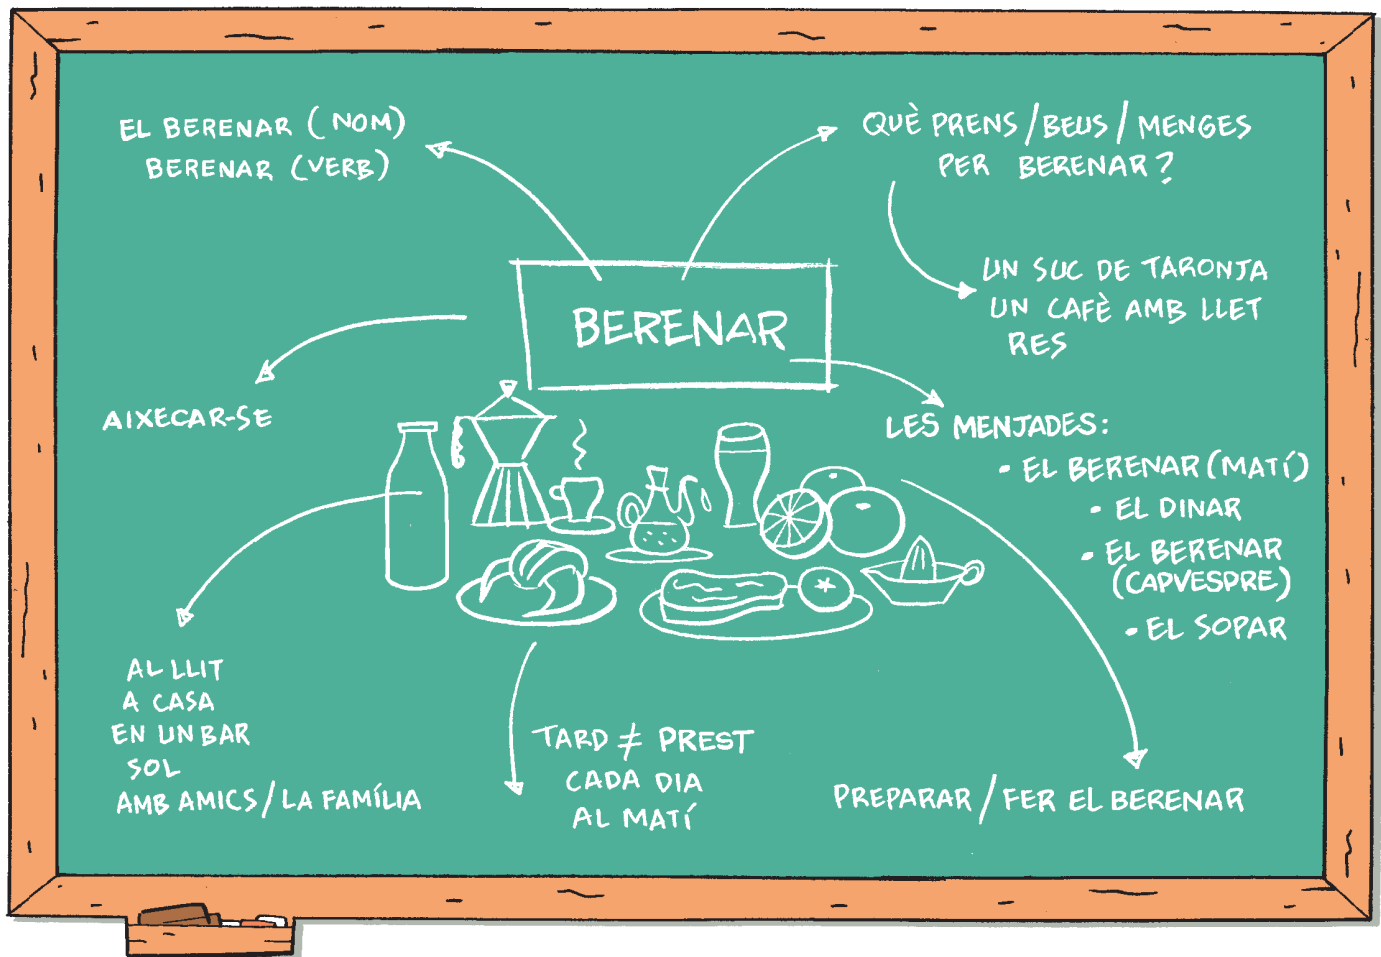 EL BERENAR (NOM)
BERENAR (VERB)
QUÈ PRENS/BEUS/MENGES
PER BERENAR?
UN SUC DE TARONJA
UN CAFÈ AMB LLET
RES
BERENAR
AIXECAR-SE
LES MENJADES:
- EL BERENAR (MATÍ)
- EL DINAR
- EL BERENAR
(CAPVESPRE)
- EL SOPAR
AL LLIT
A CASA
EN UN BAR
SOL
AMB AMICS/LA FAMÍLIA
TARD ≠ PREST
CADA DIA
AL MATÍ
PREPARAR/FER EL BERENAR